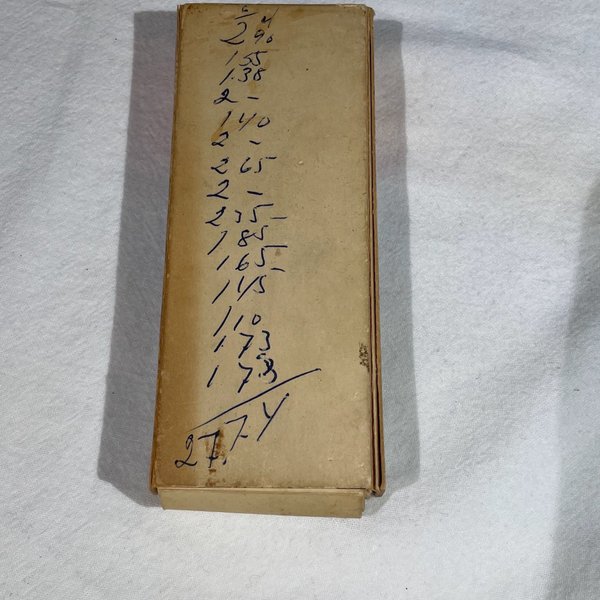 2 90
1.55
1.38
2 -
1 40
2 -
2 65
2 -
2 35 -
1 85
1 65
1 45
1 10
1.73
1 73
27.74